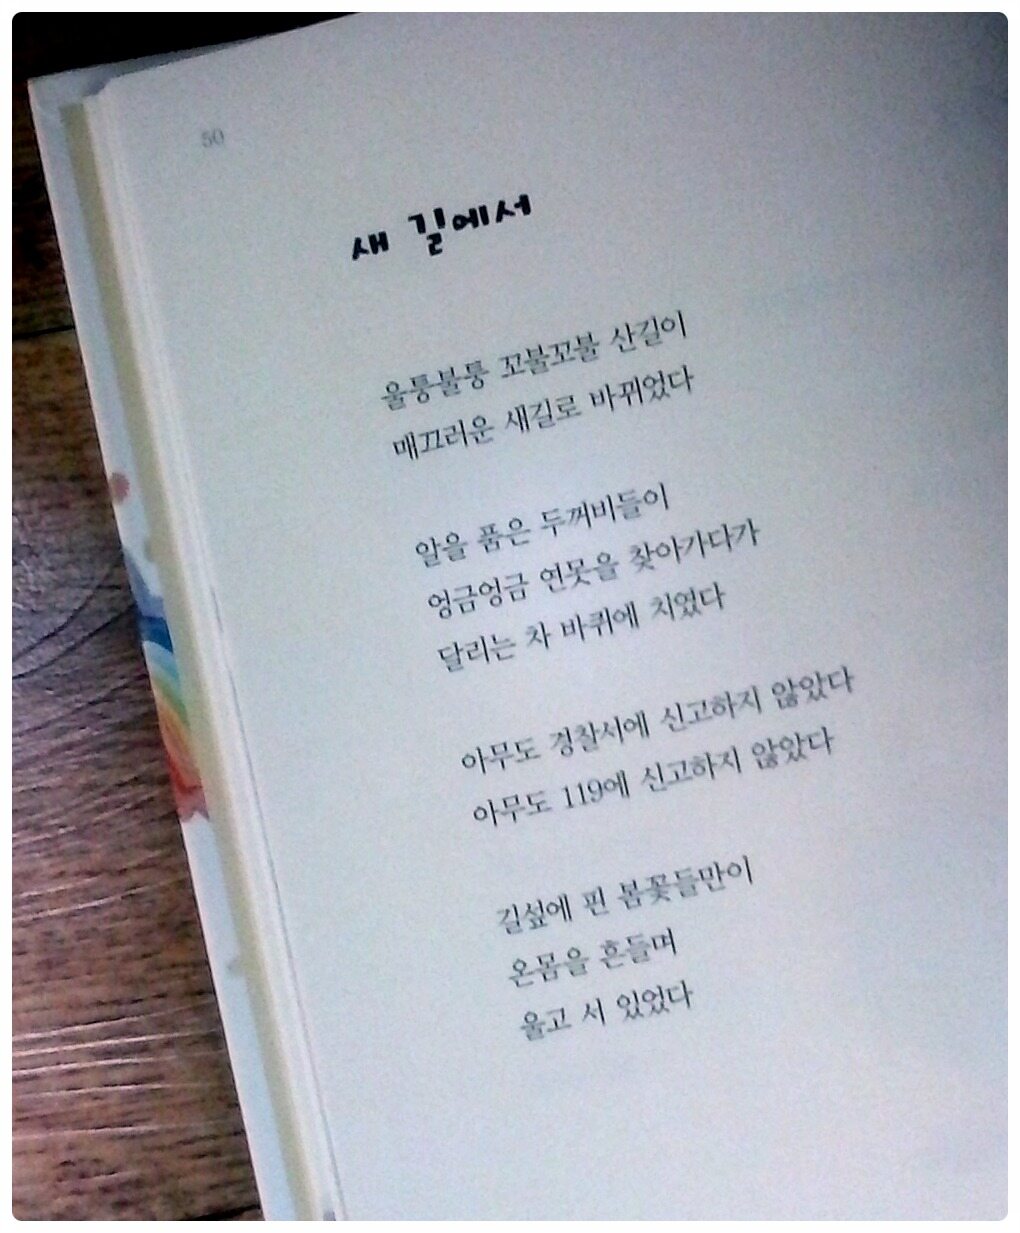 50
새 길에서
울퉁불퉁 꼬불꼬불 산길이
매끄러운 새길로 바뀌었다
알을 품은 두꺼비들이
엉금엉금 연못을 찾아가다가
달리는 차 바퀴에 치였다
아무도 경찰서에 신고하지 않았다
아무도 119에 신고하지 않았다
길섶에 핀 봄꽃들만이
온몸을 흔들며
울고 서 있었다